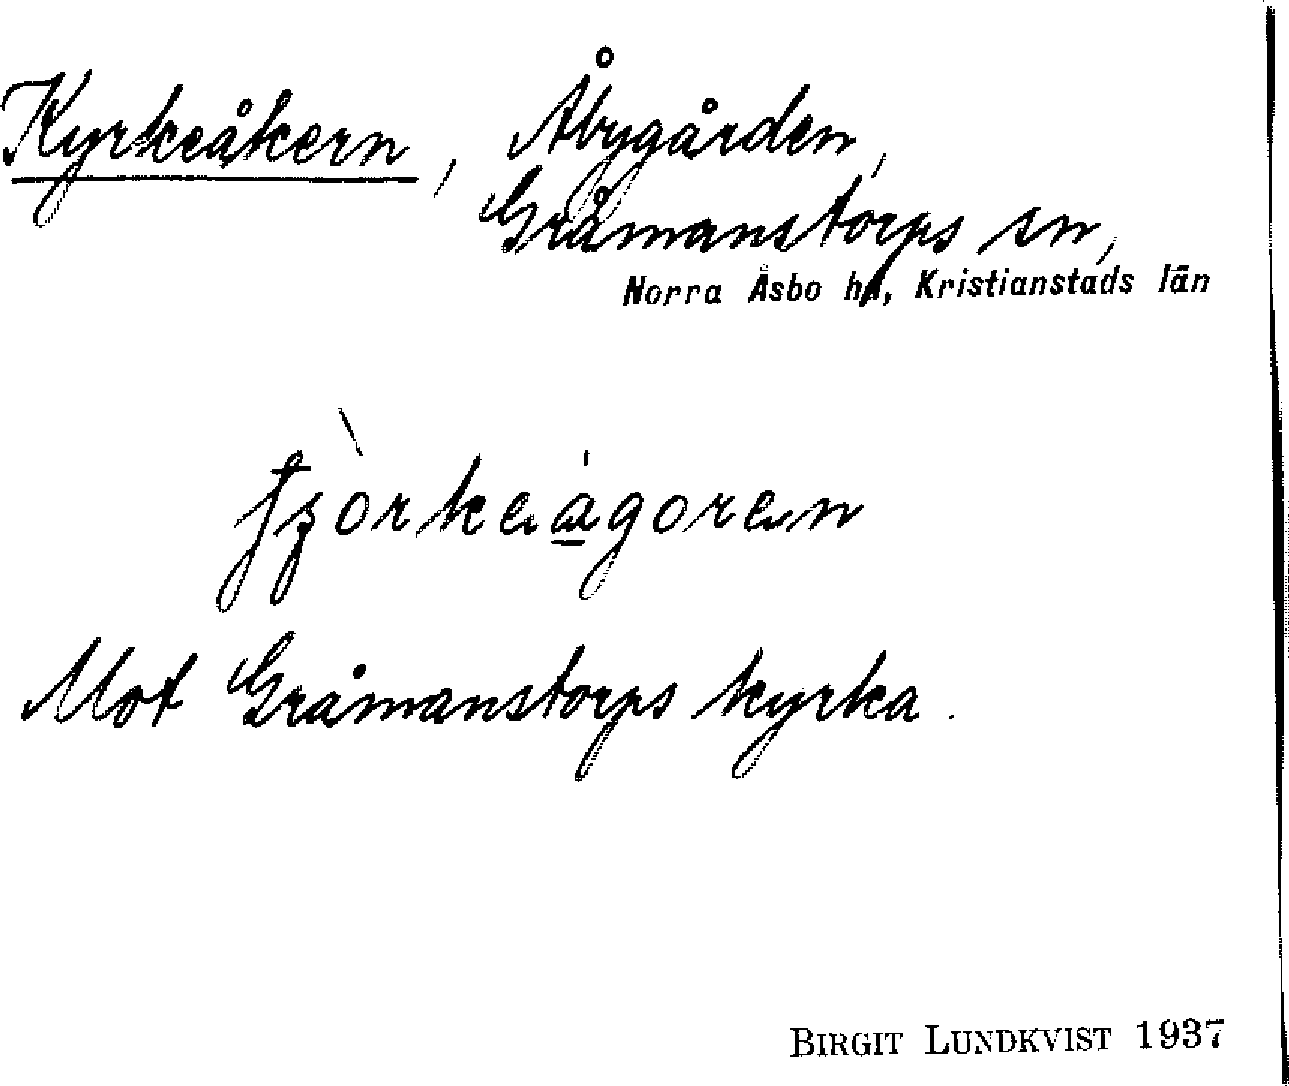 Kyrkeåkern, Åbygården,
Gråmanstorps sn,
Norra Åsbo hd, Kristianstads län
Mot Gråmanstorps kyrka.
BIRGIT LUNDKVIST 1937